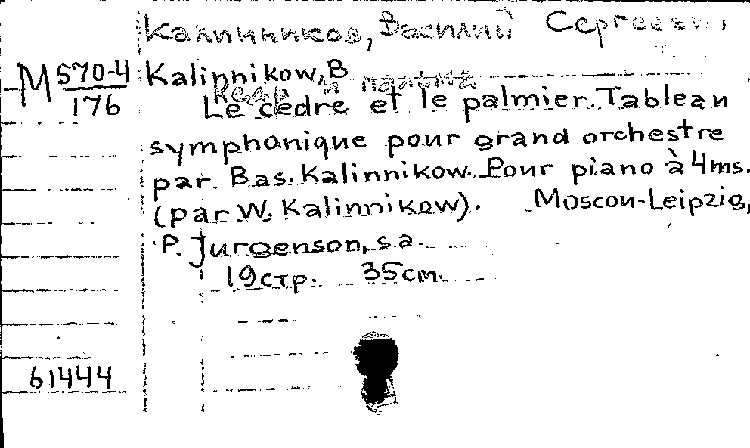 Калинников, Василий Сергеевич
М 570-4/176 Kalinnikow, B
Кедр и пальма
Le cèdre et le palmier. Tableau
symphonique pour grand orchestre
par Bas. Kalinnikow. Pour piano à 4ms.
(par W. Kalinnikow). Moscou-Leipzig,
P. Jurgenson, s.a.
19стр. 35см.
61444